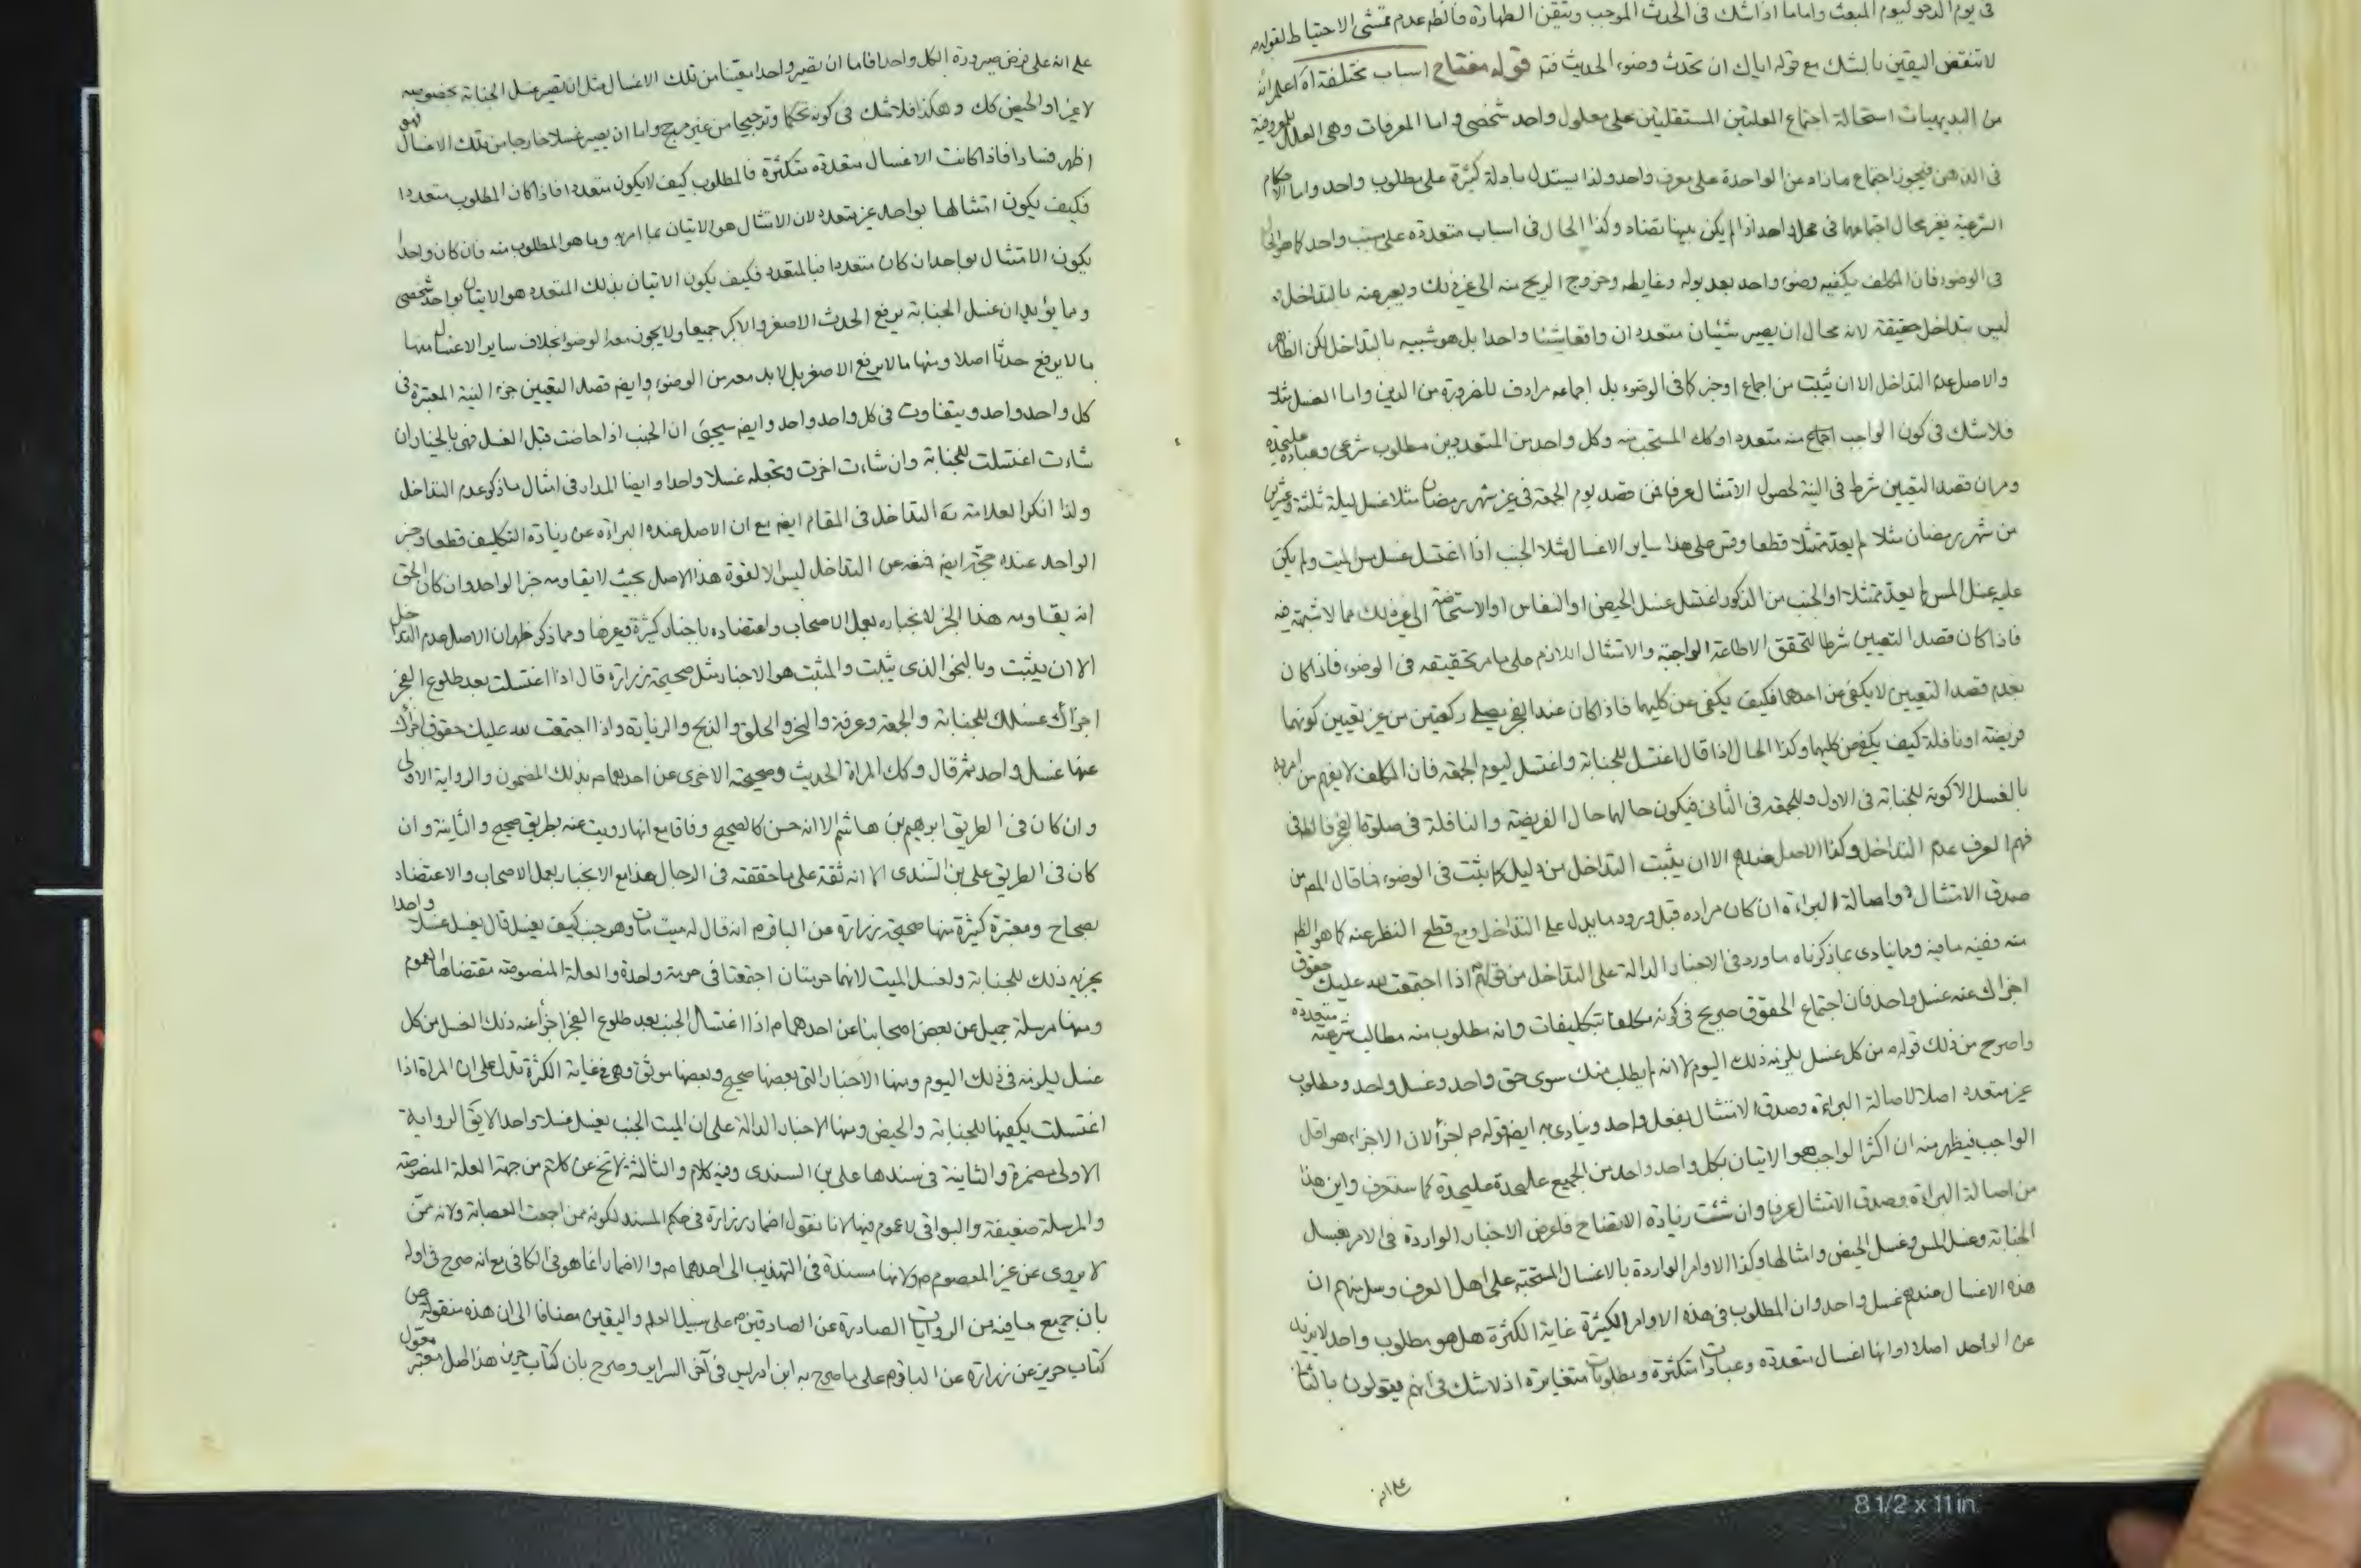 في يوم الدحو ليوم المبعث واما ما اذا شك في الحدث الموجب وتيقن الطهارة فالظم عدم تمشي الاحتياط لقوله م
لا تنقض اليقين بالشك مع قوله اياك ان تحدث وضوء الحديث فتم قوله مفتاح اسباب مختلفة اه اعلم انه
من البديهيات استحالة اجتماع العلتين المستقلتين على معلول واحد شخصي واما المعرفات وهي العلل المعروفة
في الذهن فيجوز اجتماع ما زاد عن الواحدة على معرف واحد ولذا يستدل بادلة كثيرة على مطلوب واحد واما الاحكام
الشرعية فغير محال اجتماعها في محل واحد اذا لم يكن بينها تضاد وكذا الحال في اسباب متعددة على مسبب واحد كما هو الحال
في الوضوء فان المكلف يكفيه وضوء واحد بعد بوله وغايطه وخروج الريح منه الى غير ذلك ويعبر عنه بالتداخل
ليس بتداخل حقيقة لانه محال ان يصير شيئان متعددان واقعا شيئا واحدا بل هو شبيه بالتداخل لكن الظاهر
والاصل عدم التداخل الا ان يثبت من اجماع او خبر كما في الوضوء بل اجماعه مرادف للضرورة من الدين واما الغسل مثلا
فلا شك في كون الواجب اجماع منه متعددا وكك المستحب منه وكل واحد من المتعددين مطلوب شرعي وعبادة عليحدة
ومر ان قصد التعيين شرط في النية لحصول الامتثال عرفا فمن قصد يوم الجمعة في غير شهر رمضان مثلا غسل ليلة ثلثة وعشرين
من شهر رمضان مثلا لم يعد ممتثلا قطعا وقس على هذا ساير الاغسال مثلا الجنب اذا اغتسل غسل مس الميت ولم يكن
عليه غسل المس لم يعد ممتثلا او الجنب من الذكور اغتسل غسل الحيض او النفاس او الاستحاضة الى غير ذلك مما لا شبهة فيه
فاذا كان قصد التعيين شرطا لتحقق الاطاعة الواجبة والامتثال اللازم على ما مر تحقيقه في الوضوء فاذا كان
بعدم قصد التعيين لا يكفي عن احدهما فكيف يكفي عن كليهما فاذا كان عند الفجر يصلي ركعتين من غير تعيين كونهما
فريضة او نافلة كيف يكفي عن كليهما وكذا الحال اذا قال اغتسل للجنابة واغتسل ليوم الجمعة فان المكلف لا يفهم من امره
بالغسل الا كونه للجنابة في الاول وللجمعة في الثاني فيكون حالهما حال الفريضة والنافلة في صلوة الفجر فالظ في
فهم العرف عدم التداخل وكذا الاصل عندهم الا ان يثبت التداخل من دليل كما يثبت في الوضوء فما قال المص من
صدق الامتثال واصالة البراءة ان كان مراده قبل ورود ما يدل على التداخل ومع قطع النظر عنه كما هو الظم
منه ففيه ما فيه ومما ينادي بما ذكرناه ما ورد في الاخبار الدالة على التداخل من قولهم اذا اجتمعت لله عليك حقوق
اجزاك عنه غسل واحد فان اجتماع الحقوق صريح في كونه مكلفا بتكليفات وانه مطلوب منه مطالب شرعية متعددة
واصرح من ذلك قوله م من كل غسل يلزمه ذلك اليوم لا انه لم يطلب منك سوى حق واحد وغسل واحد ومطلوب
غير متعدد اصلا لاصالة البراءة وصدق الامتثال بفعل واحد وينادي به ايضم قوله م اجزأ لان الاجزاء هو اقل
الواجب فيظهر منه ان اكثر الواجب هو الاتيان بكل واحد واحد من الجميع عليحدة عليحدة كما ستعرف واين هذا
من اصالة البراءة وصدق الامتثال عرفا وان شئت زيادة الاتضاح فاعرض الاخبار الواردة في الامر بغسل
الجنابة وغسل المس وغسل الحيض وامثالها وكذا الاوامر الواردة بالاغسال المستحبة على اهل العرف وسل منهم ان
هذه الاغسال عندهم غسل واحد وان المطلوب في هذه الاوامر الكثيرة غاية الكثرة هل هو مطلوب واحد لا يزيد
عن الواحد اصلا او انها اغسال متعددة وعبادات متكثرة ومطلوبات متغايرة اذ لا شك في انهم يقولون بالثاني
على انه
على انه على فرض صيرورة الكل واحدا فاما ان يصير واحدا معينا من تلك الاغسال مثل ان يصير غسل الجنابة بخصوصه
لا غير او الحيض كك وهكذا فلا شك في كونه تحكما وترجيحا من غير مرجح واما ان يصير غسلا خارجا من تلك الاغسال فهو
اظهر فسادا فاذا كانت الاغسال متعددة متكثرة فالمطلوب كيف لا يكون متعددا فاذا كان المطلوب متعددا
فكيف يكون امتثالها بواحد غير متعدد لان الامتثال هو الاتيان بما امر به وما هو المطلوب منه فان كان واحدا
يكون الامتثال بواحد ان كان متعددا فبالمتعدد فكيف يكون الاتيان بذلك المتعدد هو الاتيان بواحد شخصي
ومما يؤيد ان غسل الجنابة يرفع الحدث الاصغر والاكبر جميعا ولا يجوز معه الوضوء بخلاف ساير الاغسال منها
ما لا يرفع حدثا اصلا ومنها ما لا يرفع الاصغر بل لا بد معه من الوضوء وايضم قصد التعيين جزء النية المعتبرة في
كل واحد واحد ويتفاوت في كل واحد واحد وايضم سيجئ ان الجنب اذا حاضت قبل الغسل فهي بالخيار ان
شاءت اغتسلت للجنابة وان شاءت اخرت وتجعله غسلا واحدا وايضا المدار في امثال ما ذكر عدم التداخل
ولذا انكر العلامة ره التداخل في المقام ايضم مع ان الاصل عنده البراءة عن زيادة التكليف قطعا وخبر
الواحد عنده حجة ايضم فمنعه عن التداخل ليس الا لقوة هذا الاصل بحيث لا يقاومه خبر الواحد وان كان الحق
انه يقاومه هذا الخبر لانجباره بعمل الاصحاب واعتضاده باخبار كثيرة وغيرها ومما ذكر ظهر ان الاصل عدم التداخل
الا ان يثبت وبالنحو الذي يثبت والمثبت هو الاخبار مثل صحيحة زرارة قال اذا اغتسلت بعد طلوع الفجر
اجزأك غسلك للجنابة والجمعة وعرفة والنحر والحلق والذبح والزيارة واذا اجتمعت لله عليك حقوق اجزأك
عنها غسل واحد ثم قال وكك المراة الحديث وصحيحته الاخرى عن احدهما م بذلك المضمون والرواية الاولى
وان كان في الطريق ابرهيم بن هاشم الا انه حسن كالصحيح وفاقا مع انها رويت عنه بطريق صحيح والثانية وان
كان في الطريق علي بن السندي الا انه ثقة على ما حققته في الرجال هذا مع الانجبار بعمل الاصحاب والاعتضاد
بصحاح ومعتبرة كثيرة منها صحيحة زرارة عن الباقر م انه قال له ميت مات وهو جنب كيف يغسل قال يغسل غسلا واحدا
يجزيه ذلك للجنابة ولغسل الميت لانهما حرمتان اجتمعتا في حرمة واحدة والعلة المنصوصة مقتضاها العموم
ومنها مرسلة جميل عن بعض اصحابنا عن احدهما م اذا اغتسل الجنب بعد طلوع الفجر اجزأ عنه ذلك الغسل من كل
غسل يلزمه في ذلك اليوم ومنها الاخبار التي بعضها صحيح وبعضها موثق وهي في غاية الكثرة تدل على ان المراة اذا
اغتسلت يكفيها للجنابة والحيض ومنها الاخبار الدالة على ان الميت الجنب يغسل غسلا واحدا لا يق الرواية
الاولى مضمرة والثانية في سندها علي بن السندي وفيه كلام والثالثة لا تخ عن كلام من جهة العلة المنصوصة
والمرسلة ضعيفة والبواقي لا عموم فيها لانا نقول اضمار زرارة في حكم المسند لكونه ممن اجمعت العصابة ولانه ممن
لا يروى عن غير المعصوم م ولانها مسندة في التهذيب الى احدهما م والاضمار انما هو في الكافي مع انه صرح في اوله
بان جميع ما فيه من الروايات الصادرة عن الصادقين م على سبيل العلم واليقين مضافا الى ان هذه منقولة من
كتاب حريز عن زرارة عن الباقر م على ما صرح به ابن ادريس في آخر السراير وصرح بان كتاب حريز هذا اصل معتبر معول
8 1/2 x 11 in.